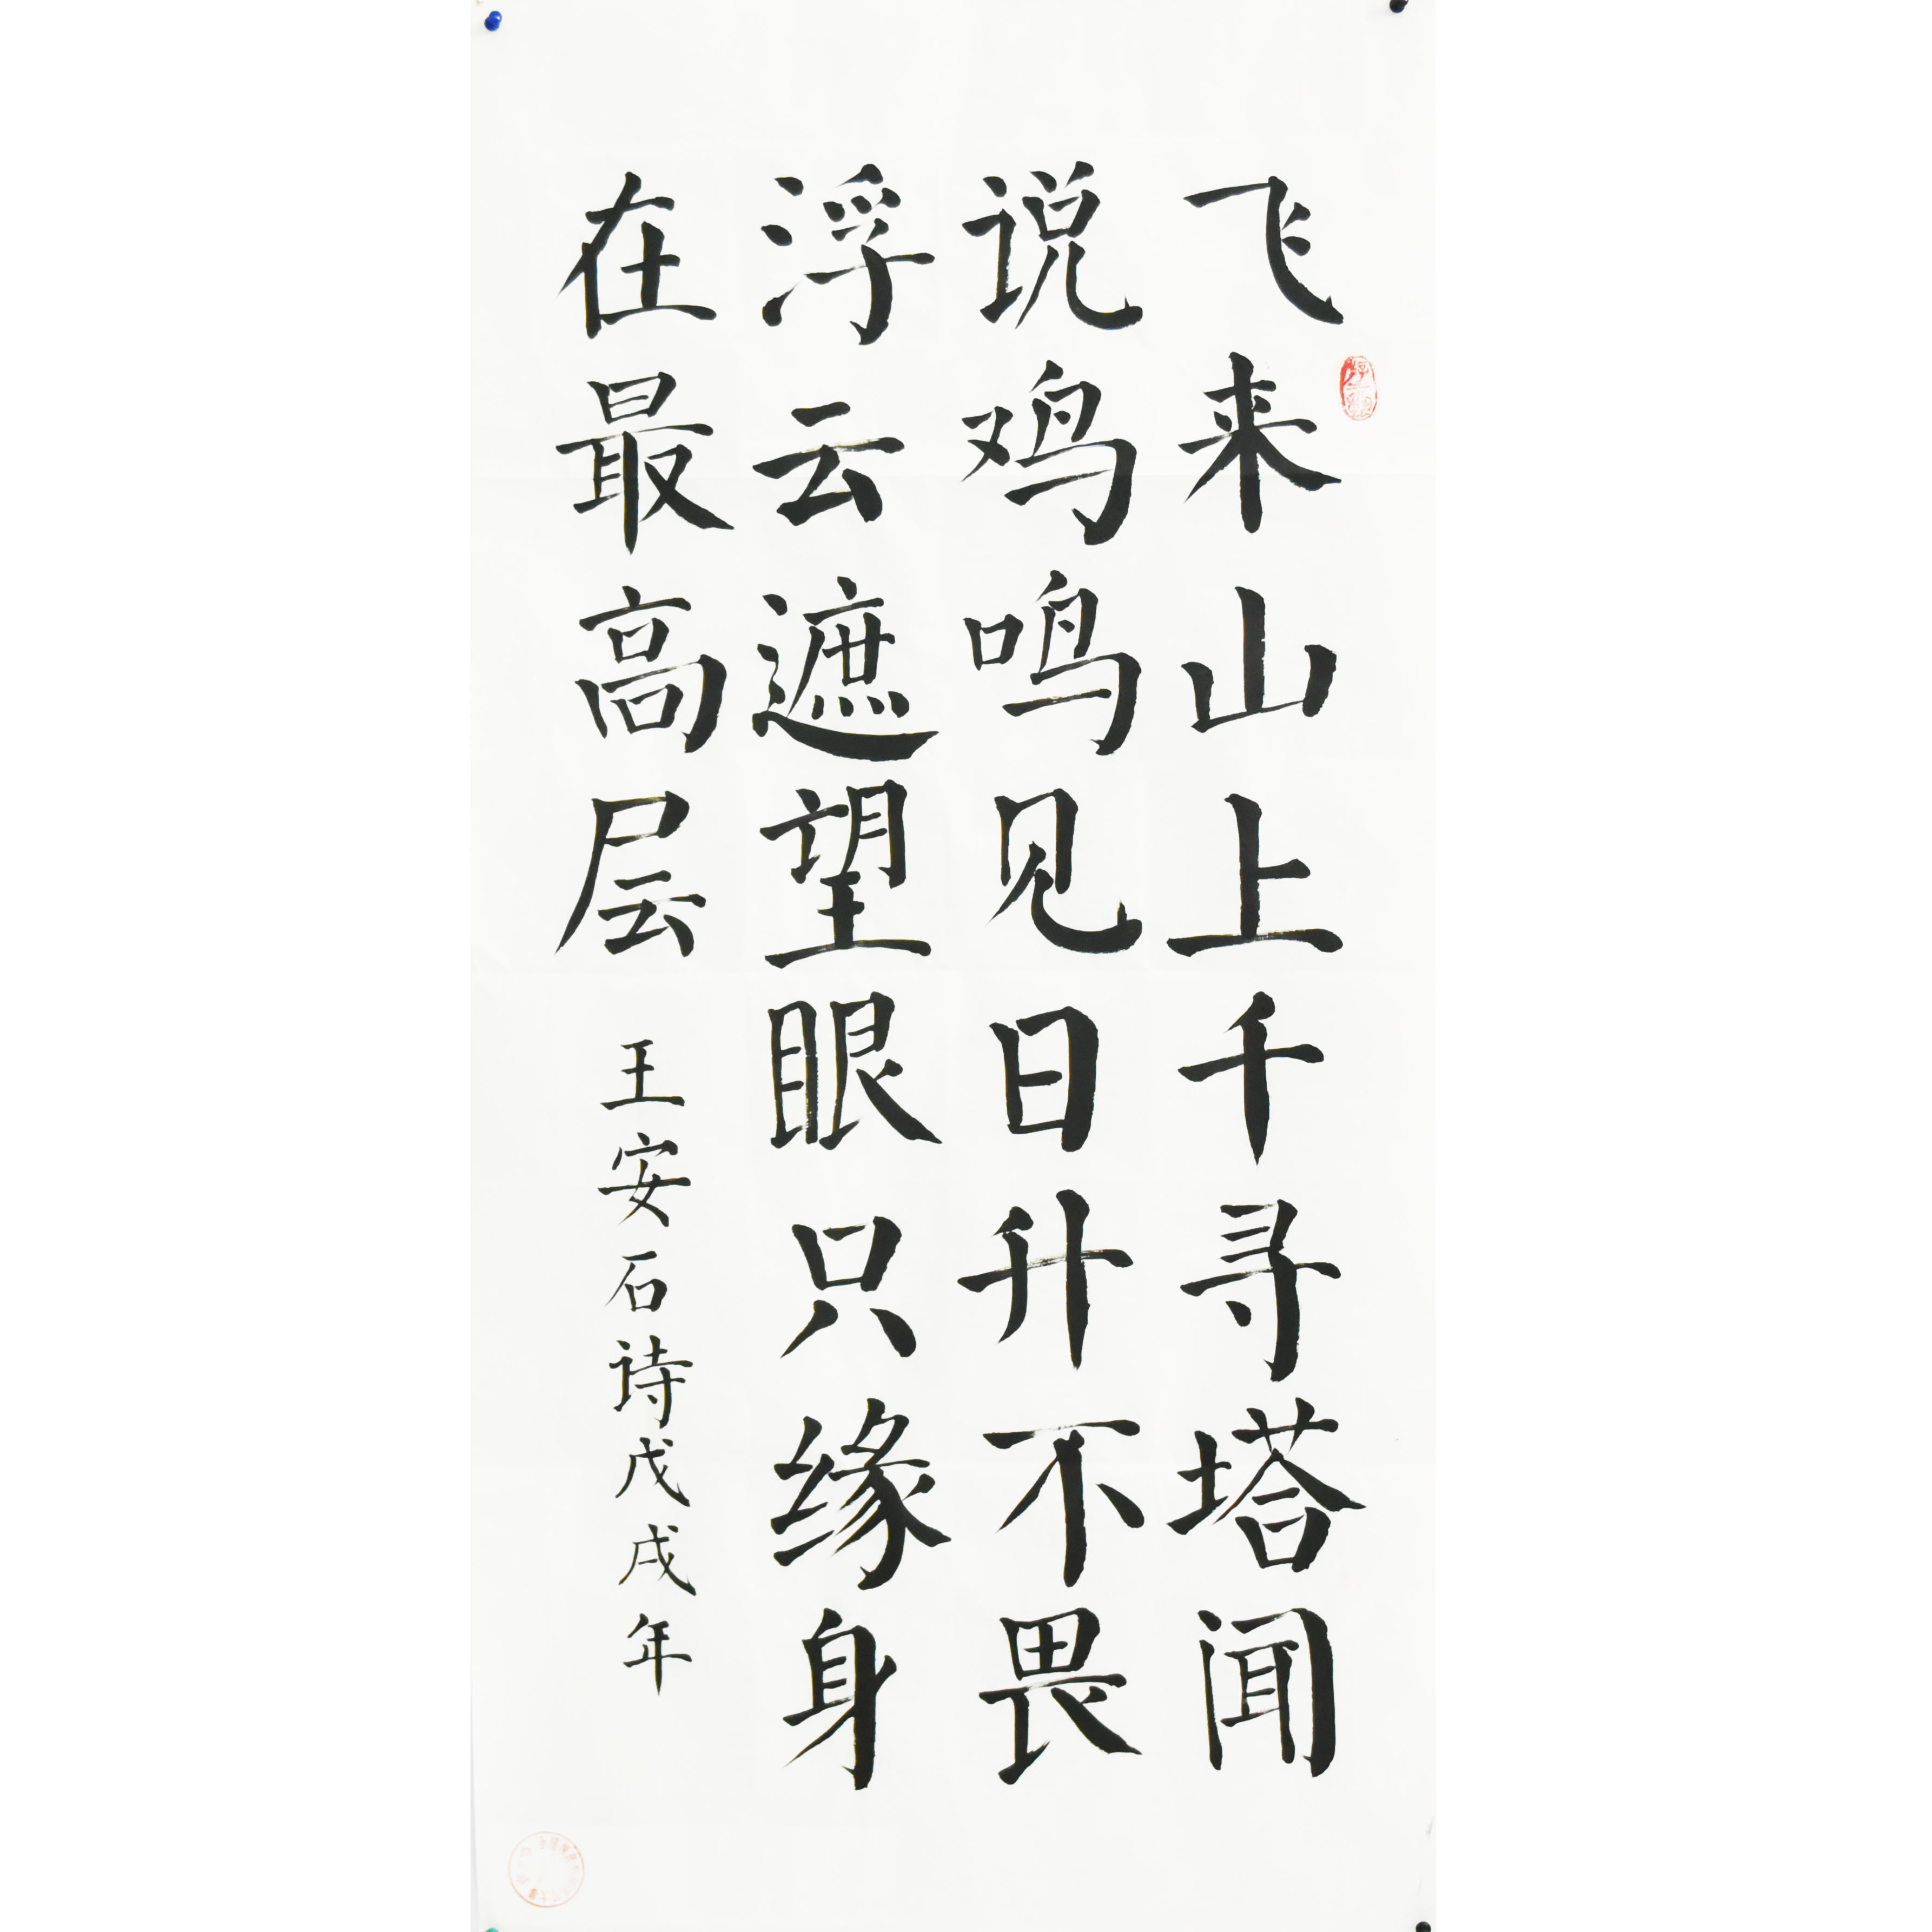 飞来山上千寻塔闻
说鸡鸣见日升不畏
浮云遮望眼只缘身
在最高层
王安石诗戊戌年